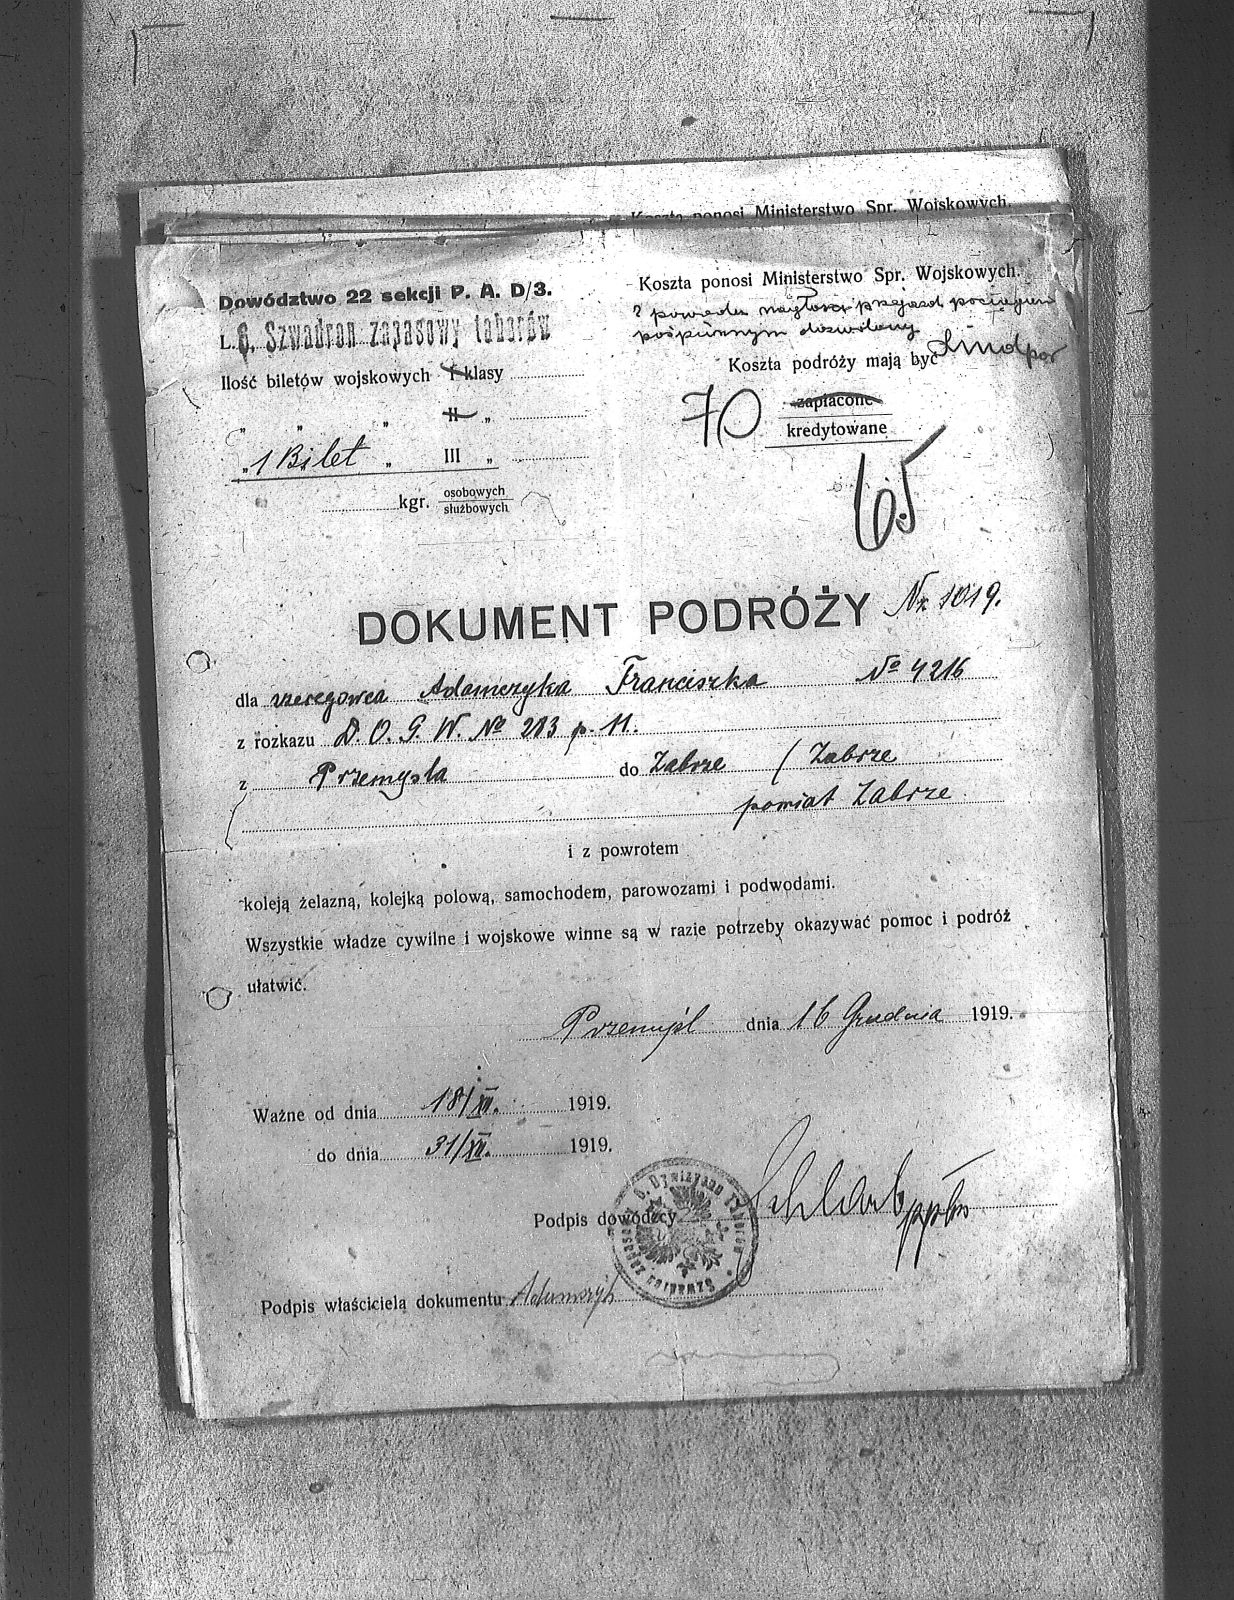 Koszta ponosi Ministerstwo Spr. Wojskowych.
Dowództwo 22 sekcji P. A. D/3.
L. 6. Szwadron zapasowy taborów
Ilość biletów wojskowych I klasy
" " " II "
"1 Bilet " III "
kgr. osobowych
służbowych
Koszta ponosi Ministerstwo Spr. Wojskowych.
Z powodu nagłości przejazd pociągiem
pośpiesznym dozwolony
Koszta podróży mają być
70 zapłacone
kredytowane
65
DOKUMENT PODRÓŻY Nr. 1019.
dla szeregowca Adamczyka Franciszka No 4216
z rozkazu D. O. G. W. No 283 p. 11.
z Przemyśla do Zabrze / Zabrze
powiat Zabrze
i z powrotem
koleją żelazną, kolejką polową, samochodem, parowozami i podwodami.
Wszystkie władze cywilne i wojskowe winne są w razie potrzeby okazywać pomoc i podróż
ułatwić.
Przemyśl dnia 16 Grudnia 1919.
Ważne od dnia 18/XII. 1919.
do dnia 31/XII. 1919.
Podpis dowódcy ppłk
Szwadron zapasowy 6. Dywizyonu Taborów
Podpis właściciela dokumentu Adamczyk